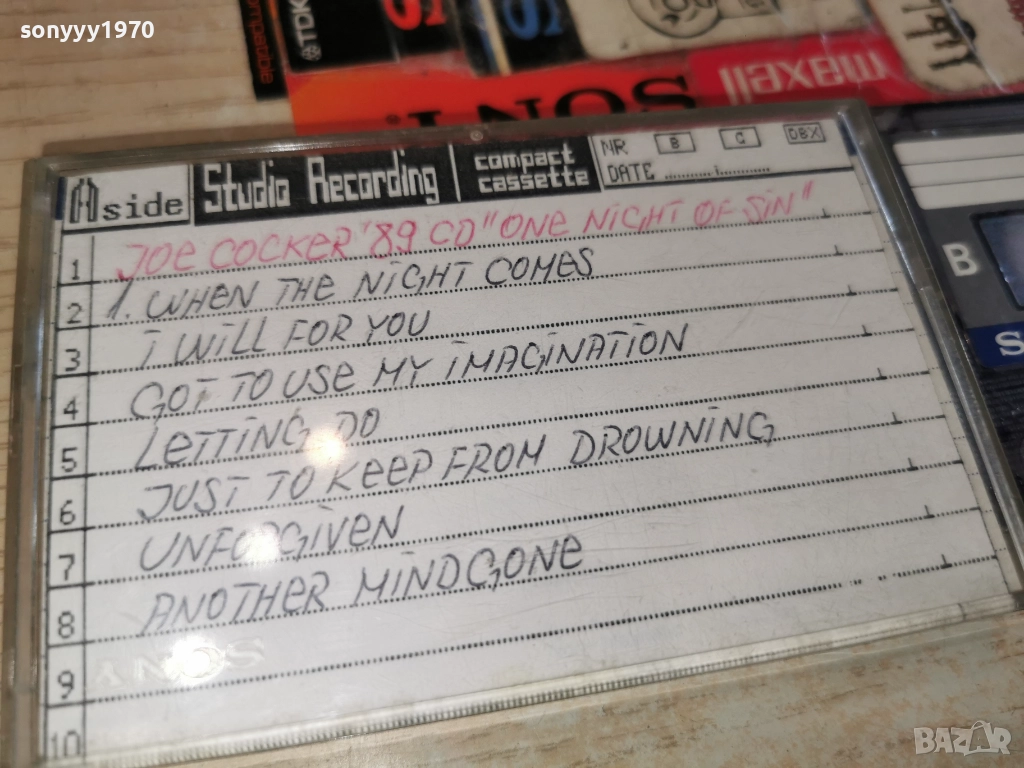 sonyyy1970
TDK
S
S
SONY
maxell
A side
Studio Recording
compact cassette
NR B C DBX
DATE
1 JOE COCKER '89 CD "ONE NIGHT OF SIN"
2 1. WHEN THE NIGHT COMES
3 I WILL FOR YOU
4 GOT TO USE MY IMAGINATION
5 LETTING DO
6 JUST TO KEEP FROM DROWNING
7 UNFORGIVEN
8 ANOTHER MIND GONE
9
10
SONY
B
S
BAZAR